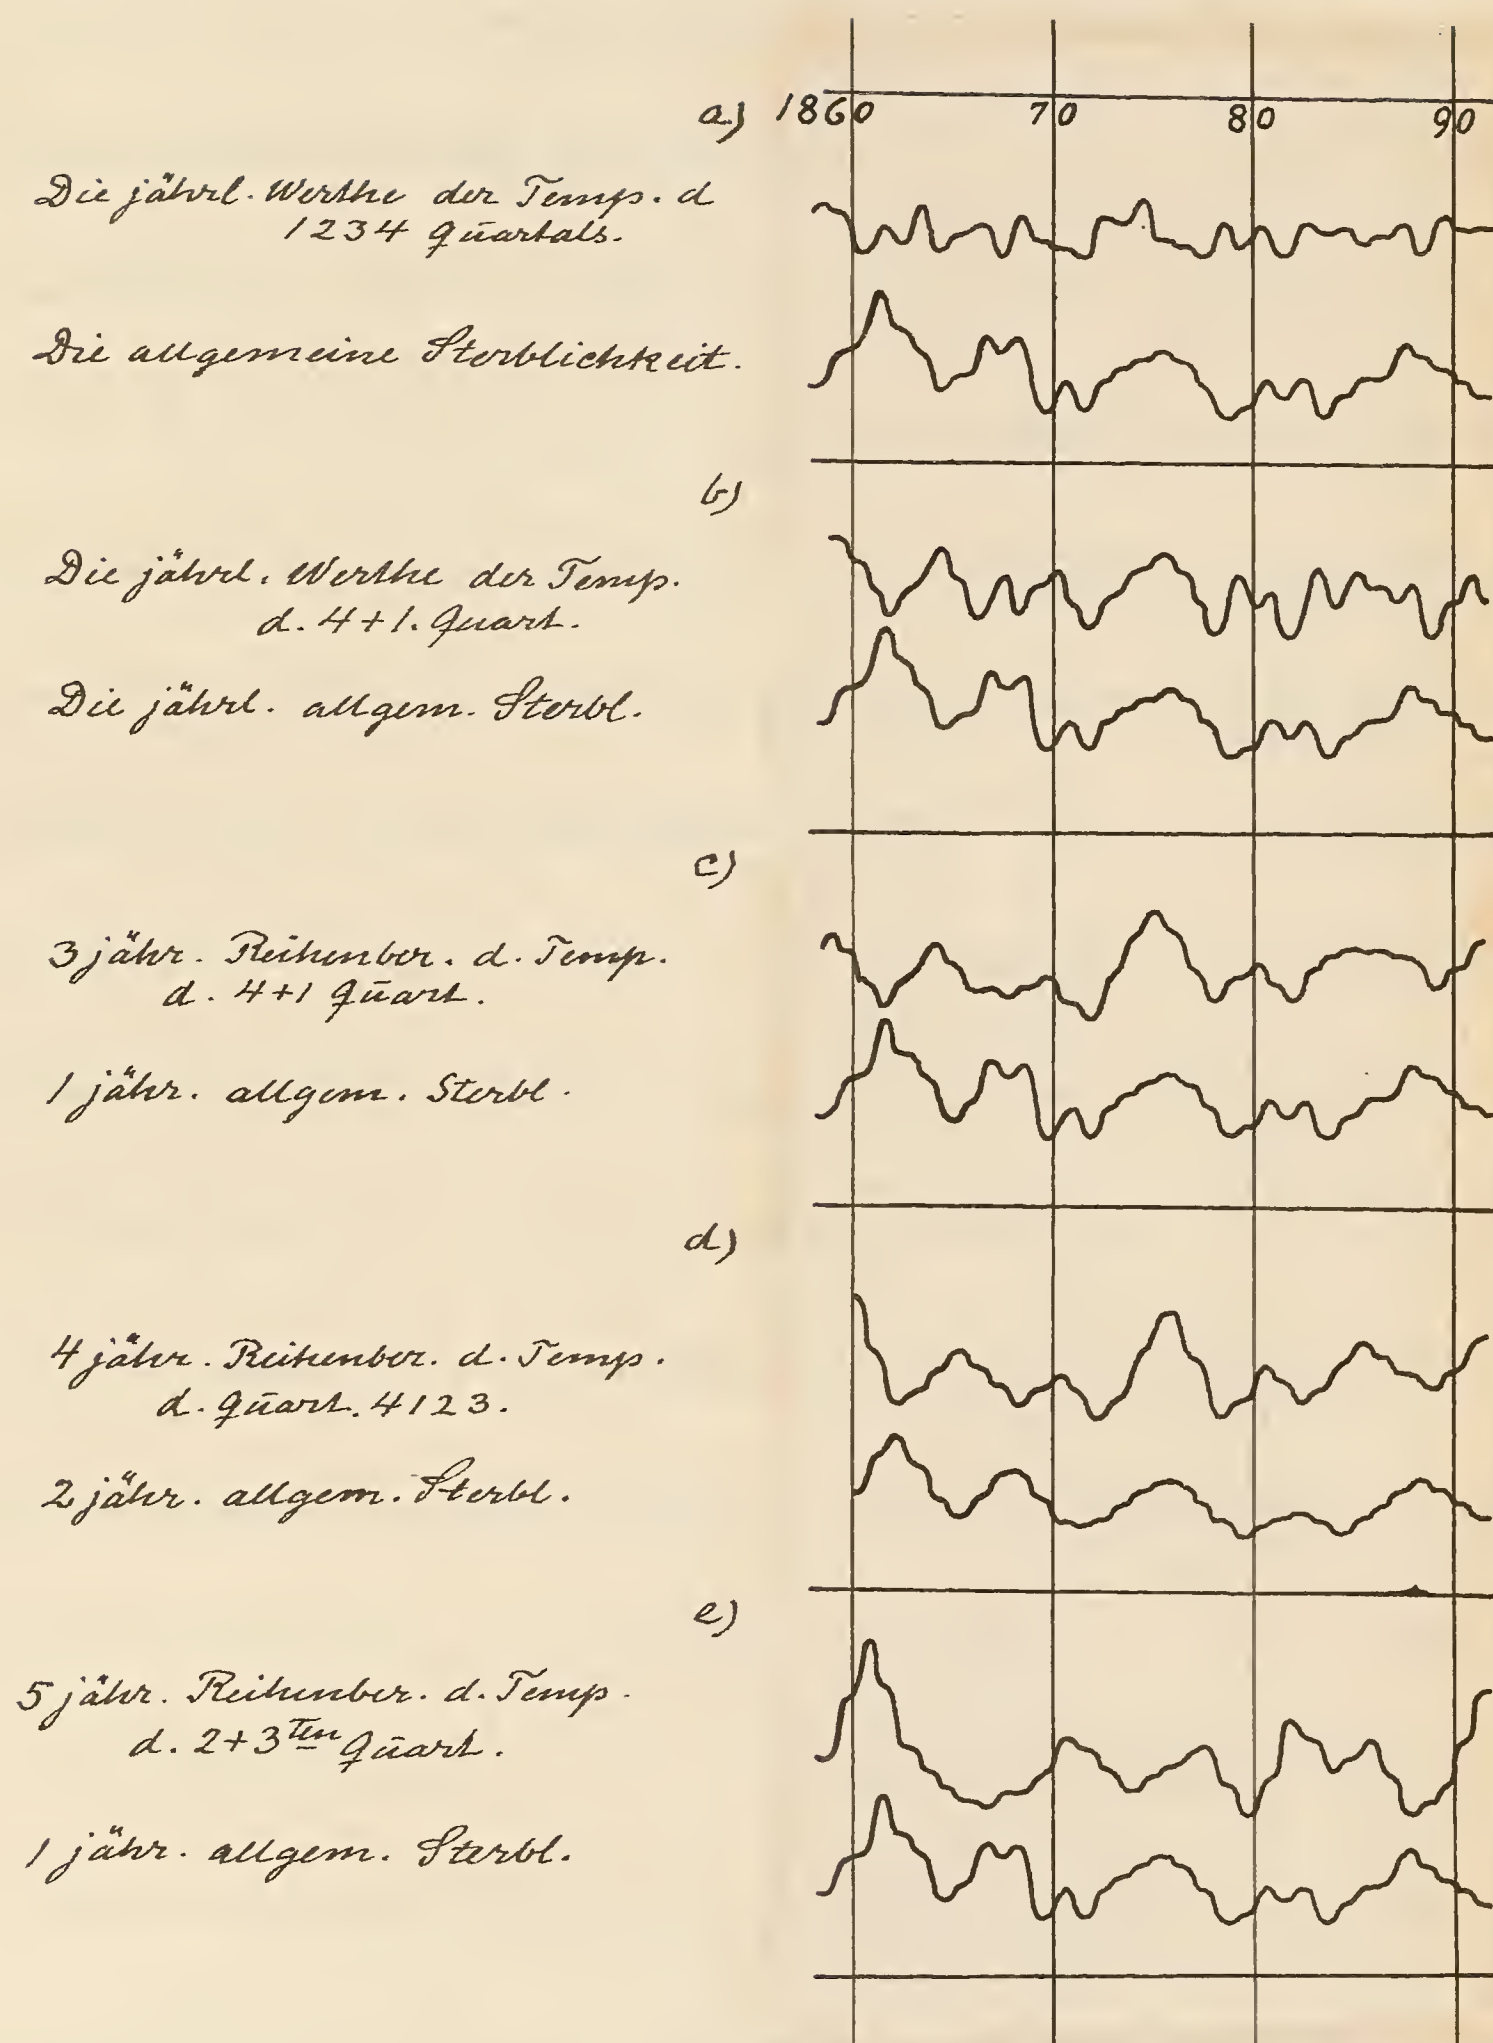 a) 1860 70 80 90
Die jährl. Werthe der Temp. d
1234 Quartals.
Die allgemeine Sterblichkeit.
b)
Die jährl. Werthe der Temp.
d. 4+1. Quart.
Die jährl. allgem. Sterbl.
c)
3 jähr. Reihenber. d. Temp.
d. 4+1 Quart.
1 jähr. allgem. Sterbl.
d)
4 jähr. Reihenber. d. Temp.
d. Quart. 4123.
2 jähr. allgem. Sterbl.
e)
5 jähr. Reihenber. d. Temp.
d. 2+3ten Quart.
1 jähr. allgem. Sterbl.